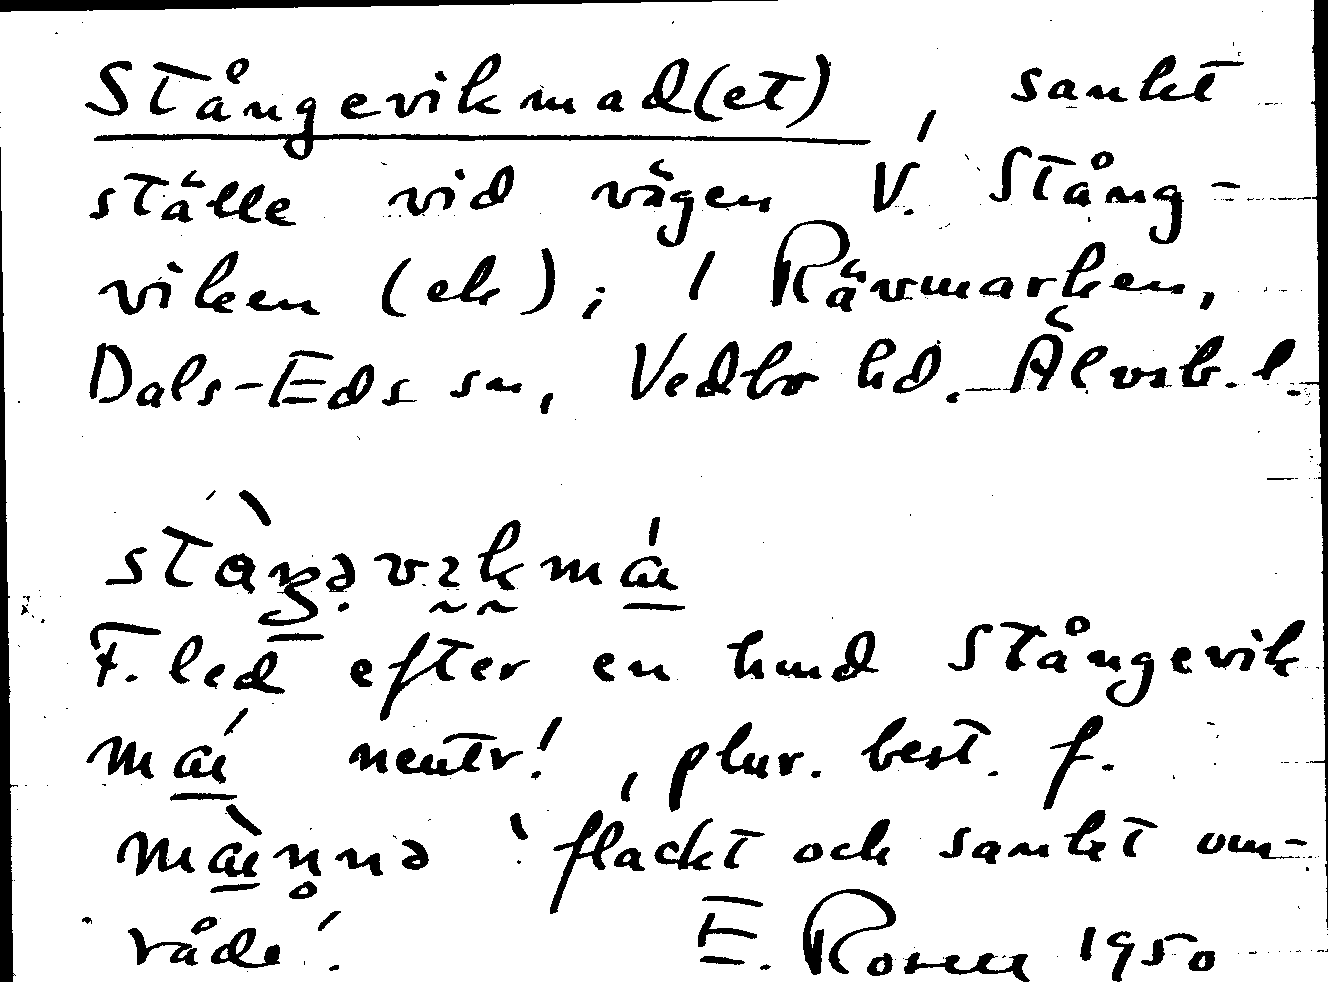 Stångevikmad(et), sankt
ställe vid vägen V. Stång-
viken (ek); i Rävmarken,
Dals-Eds sn, Vedbo hd. Älvsb. l.
F. led efter en hund Stångevik
neutr!, plur. best. f.
'flackt och sankt om-
råde'. E. Rosell 1950